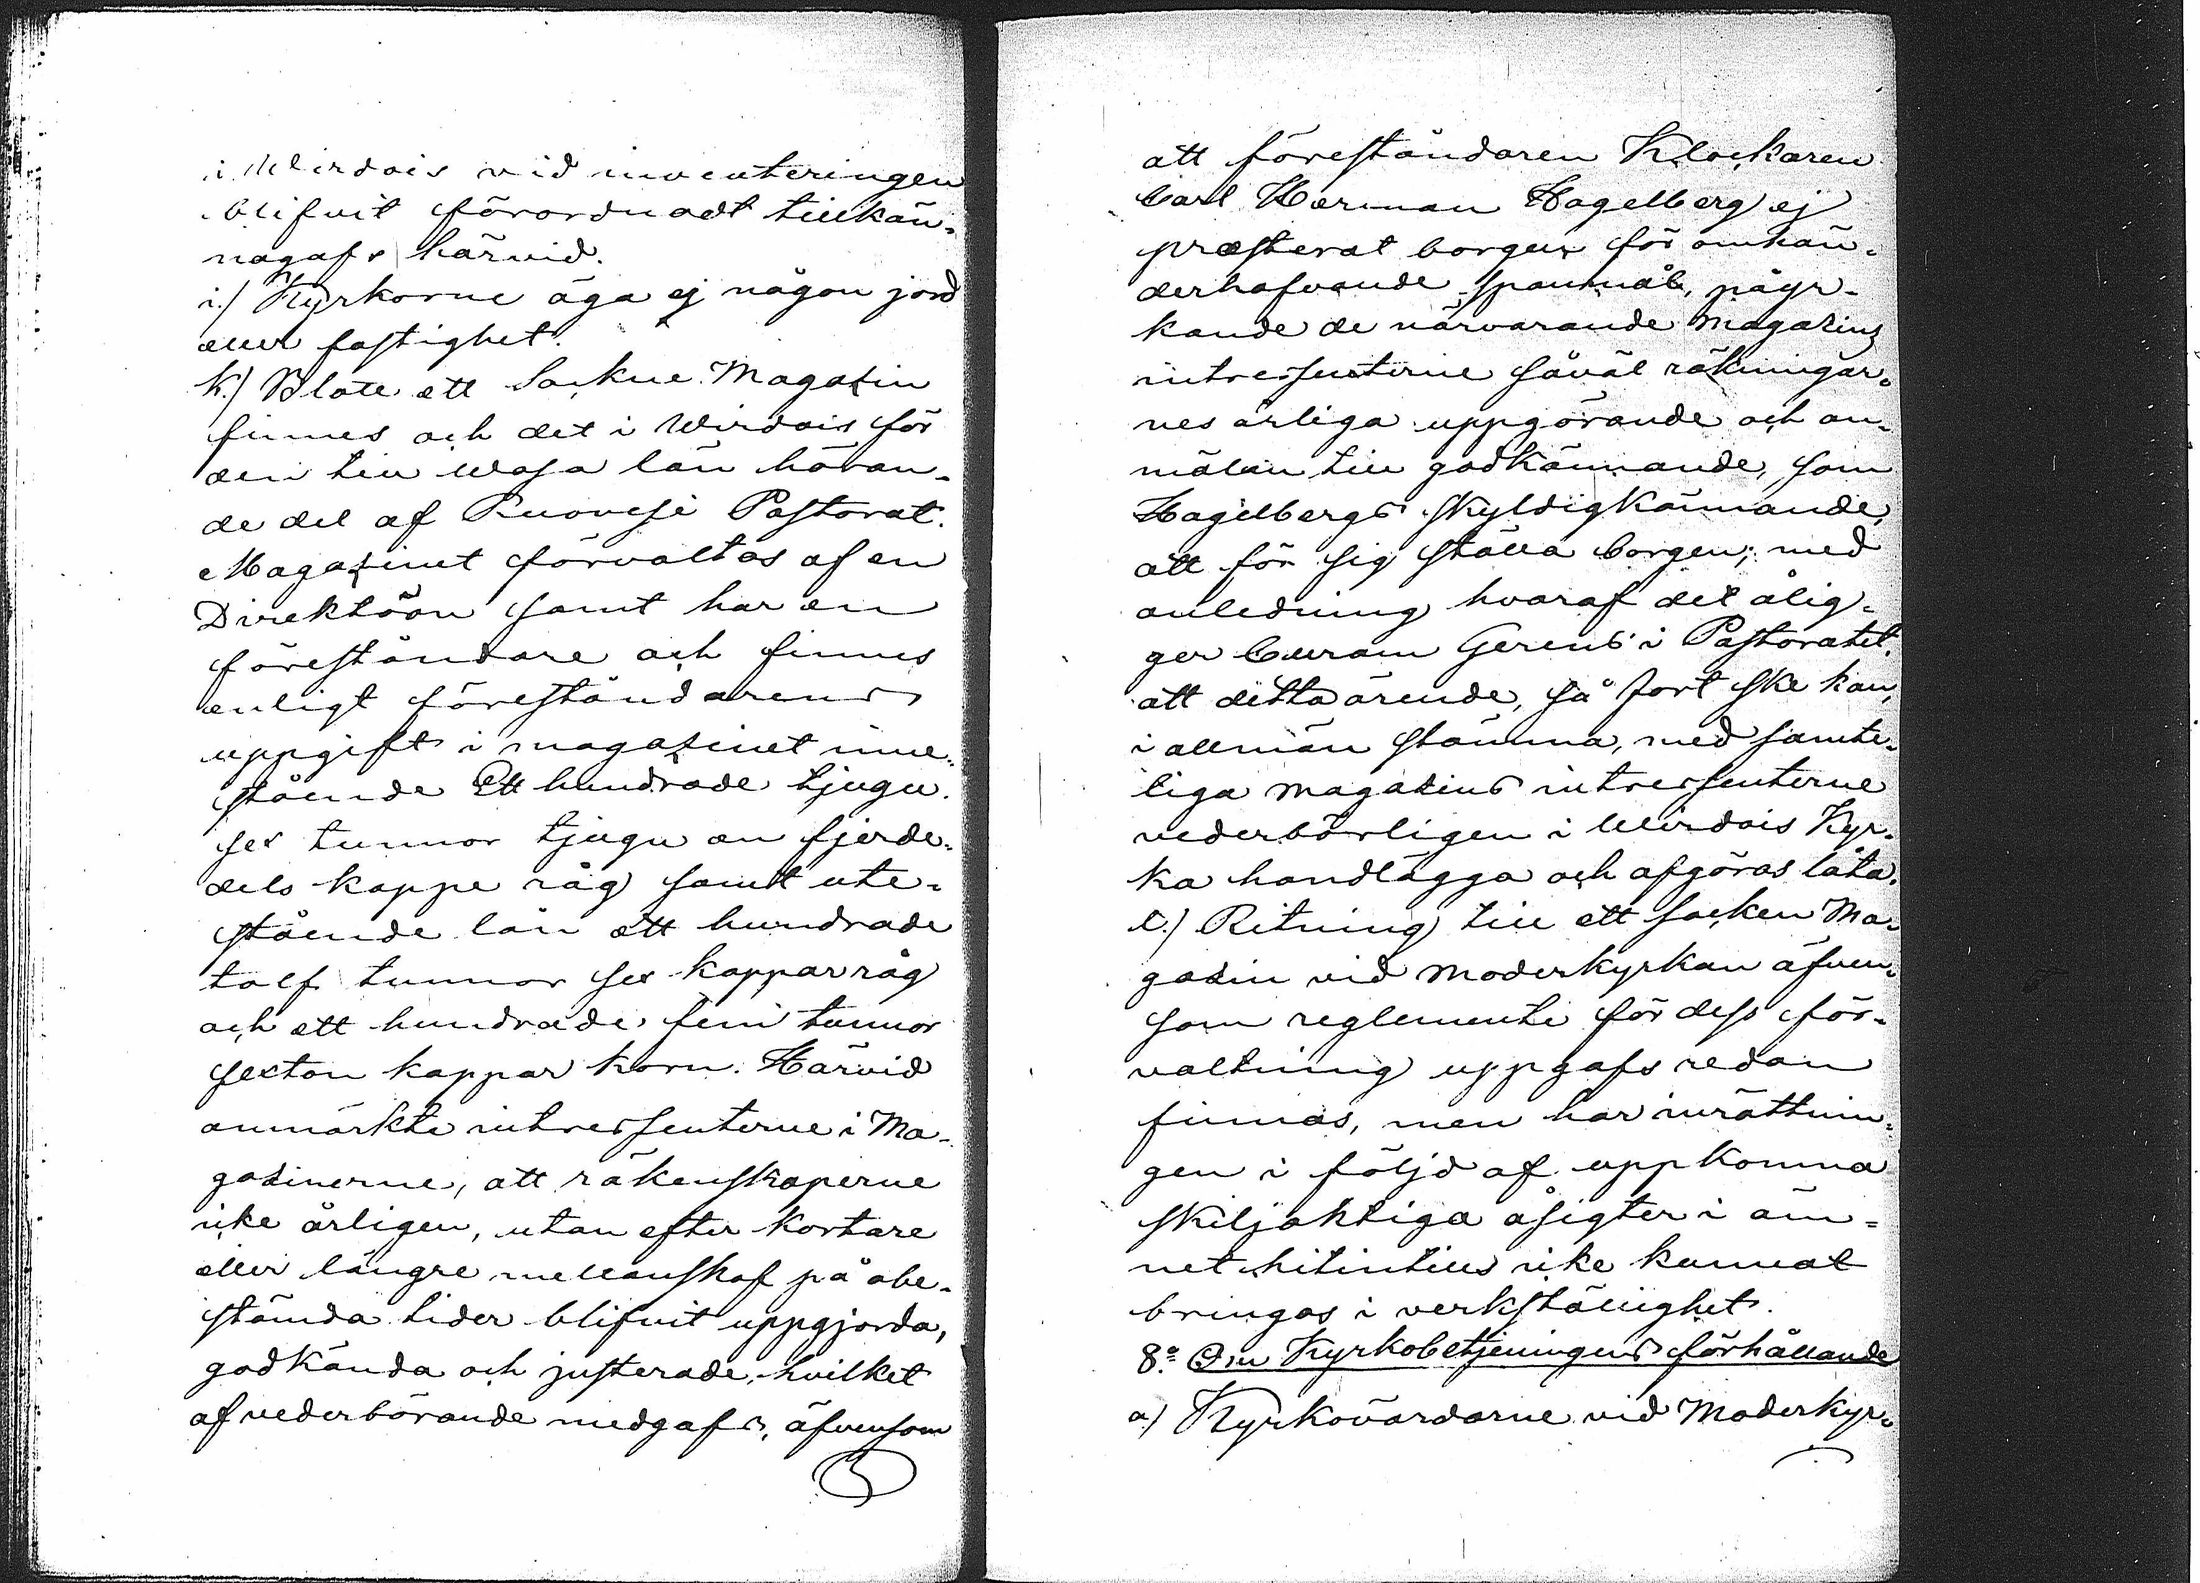 i Wirdois vid inventeringen
blifvit förordnadt tillkän-
nagafs härvid.
i.) Kyrkorne äga ej någon jord
eller fastighet.
k.) Blott ett Sockne Magasin
finnes och det i Wirdois för
den till Wasa län höran-
de del af Ruovesi Pastorat.
Magasinet förvaltas af en
Direktion samt har en
föreståndare och finnes
enligt föreståndarens
uppgift i magasinet inne-
stående Ett hundrade tjugu
sex tunnor tjugu en fjerde-
dels kappe råg samt ute-
stående lån ett hundrade
tolf tunnor sex kappar råg
och ett hundrade fem tunnor
sexton kappar korn. Härvid
anmärkte intressenterne i Ma-
gasinerne, att räkenskaperne
icke årligen, utan efter kortare
eller längre mellanskof på obe-
stämda tider blifvit uppgjorda,
godkända och justerade, hvilket
af vederbörande medgafs, äfvensom
att föreståndaren Klockaren
Carl Herman Hagelberg ej
præsterat borgen för omhän-
derhafvande spanmål, påyr-
kande de närvarande Magasins
intressenterne såväl räkningar-
nes årliga uppgörande och an-
mälan till godkännande, som
Hagelbergs skyldigkännande,
att för sig ställa borgen; med
anledning hvaraf det ålig-
ger Curam Gerens i Pastoratet,
att detta ärende, så fort ske kan,
i allmän stämma, med samte-
liga magasins intressenterne
vederbörligen i Wirdois Kyr-
ka handlägga och afgöras låta.
l.) Ritning till ett socken Ma-
gasin vid moderkyrkan äfven-
som reglemente för dess för-
valtning uppgafs redan
finnas, men har inrättnin-
gen i följd af uppkomna
skiljaktiga åsigter i äm-
net hitintills icke kunnat
bringas i verkställighet.
8:o Om Kyrkobetjeningens förhållande
a) Kyrkovärdarne vid Moderkyr-